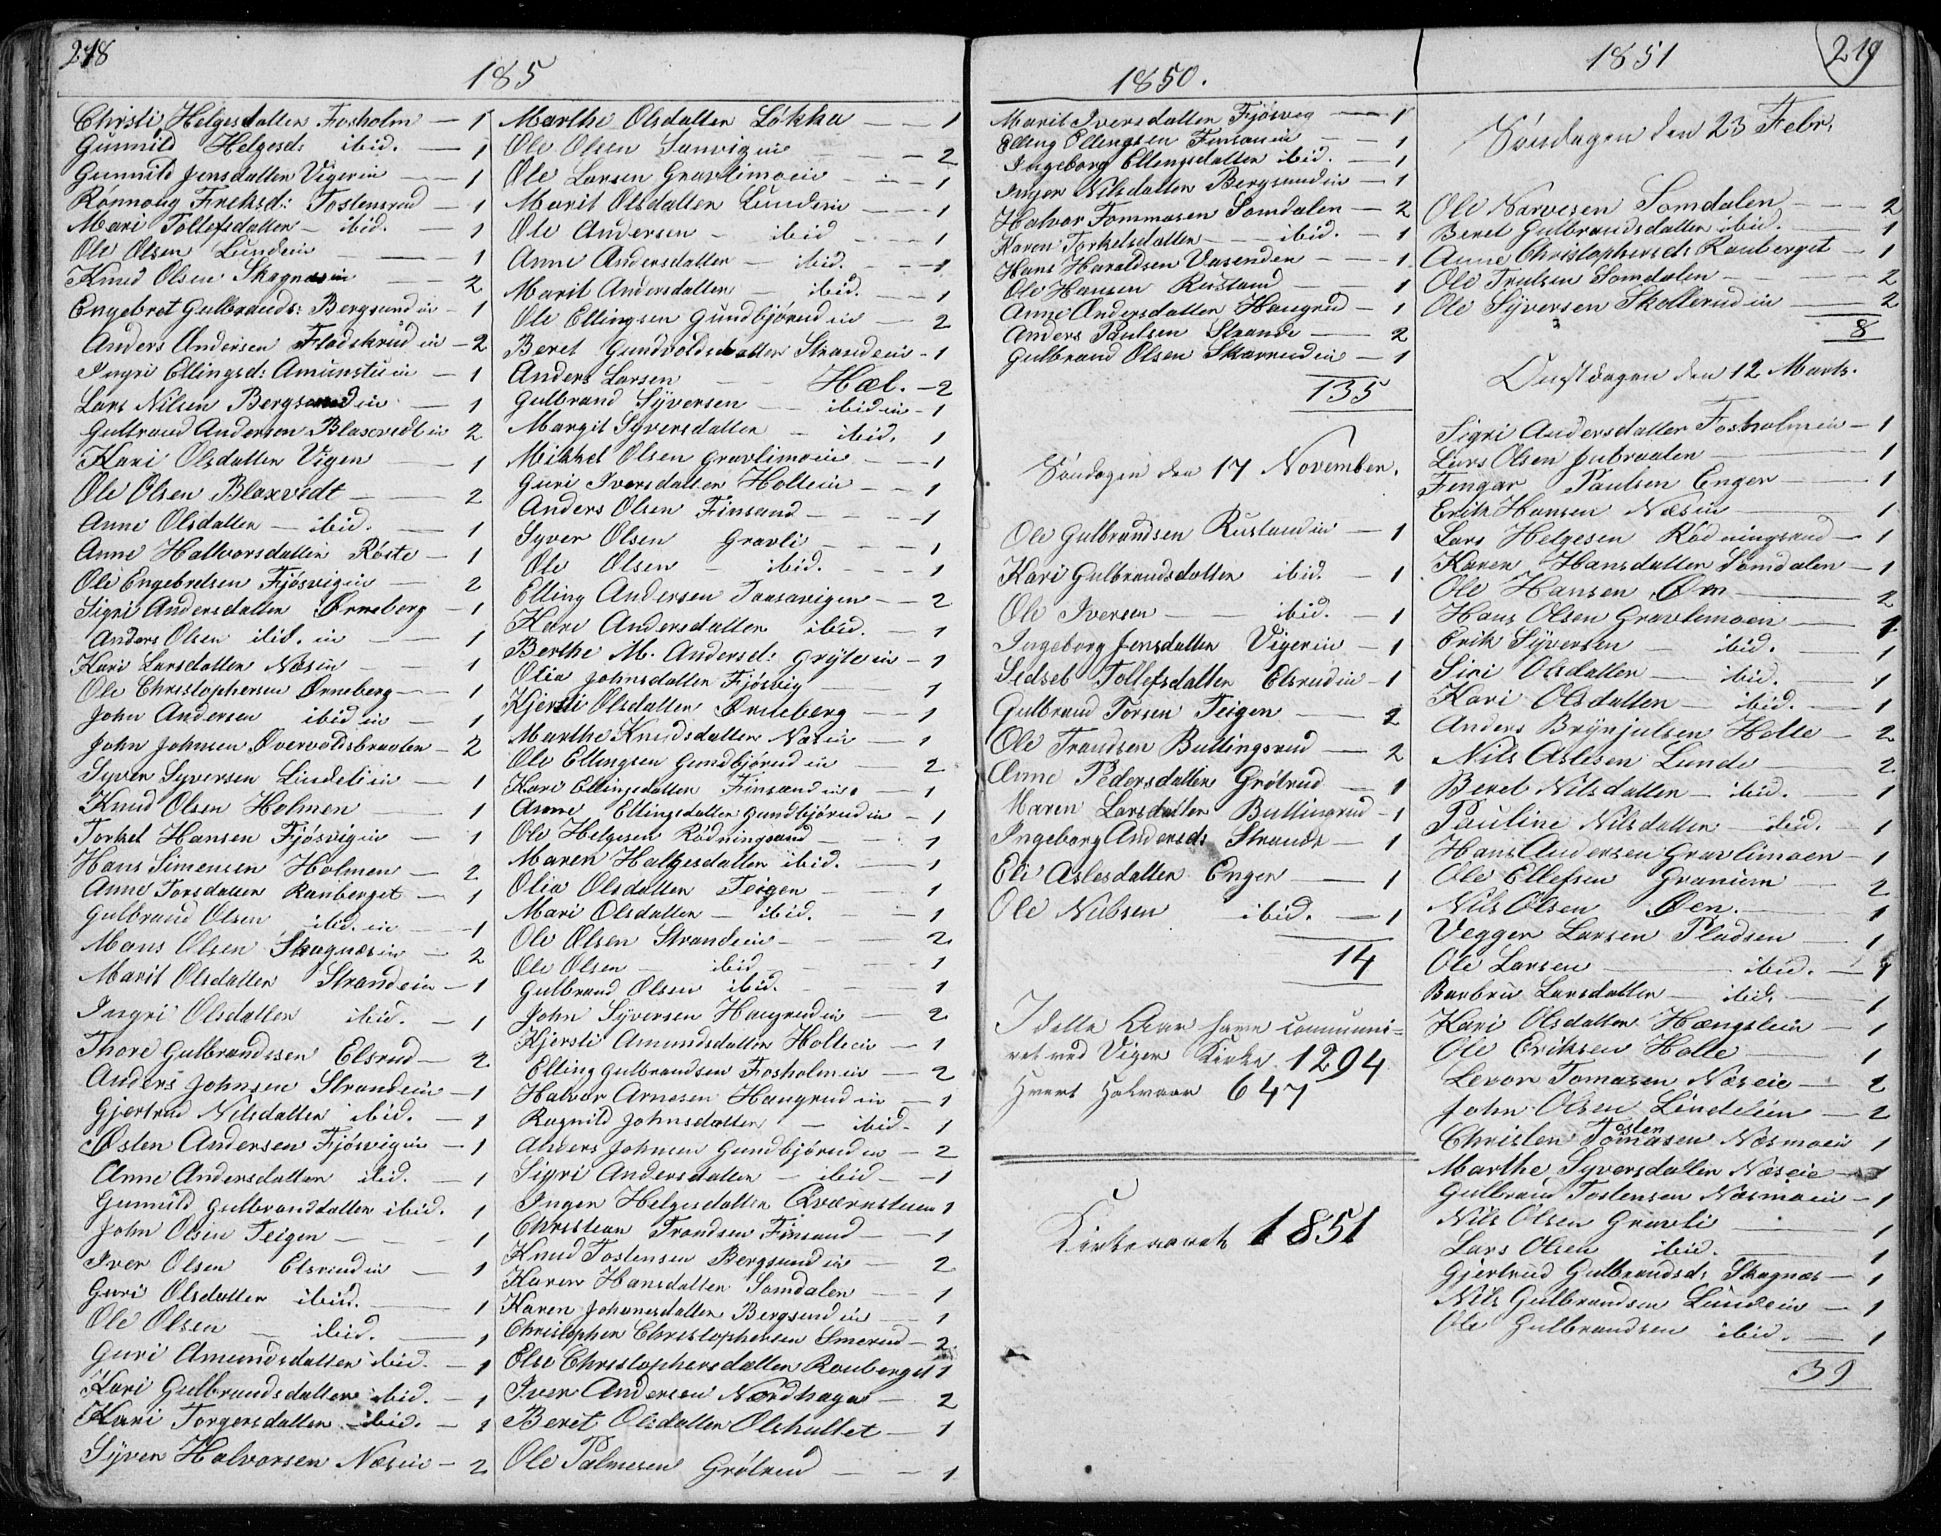 218
185
Chirsti Helgesdatter Fosholm — 1
Gunnild Helgesd: ibid. — 1
Gunnild Jensdatter Vigerie — 1
Rønnoug Eriksd: Tostensrud — 1
Mari Tollefsdatter — ibid. — 1
Ole Olsen Lundein — 1
Knud Olsen Skagnæsie — 2
Engebret Gulbrands: Bergsundie — 1
Anders Andersen Fladskrudie — 2
Ingri Ellingsd: Amunstuie — 1
Lars Nilsen Bergsundie — 1
Gulbrand Andersen Blaxvedtie 2
Kari Olsdatter Vigen — 1
Ole Olsen Blaxvedt — 2
Anne Olsdatter — ibid. — 1
Anne Halvorsdatter Røste — 1
Ole Engebretsen Fjøsvigie — 2
Sigri Andersdatter Ørneberg — 1
Anders Olsen ibid. ie — 1
Kari Larsdatter Næsie — 1
Ole Christophersen Ørneberg — 1
John Andersen ibid ie — 1
John Johnsen Øvervoldsbraaten — 2
Syver Syversen Lindeliie — 1
Knud Olsen Holmen — 1
Torkel Hansen Fjøsvigie — 1
Hans Simensen Holmen — 2
Anne Torsdatter Rauberget — 1
Gulbrand Olsen ibid. ie — 1
Mons Olsen Skagnæsie — 2
Marit Olsdatter Strandeie — 1
Ingri Olsdatter ibid. — 1
Thore Gulbrandssen Elsrud — 2
Anders Johnsen Strandeie — 1
Gjertrud Nilsdatter ibid. — 1
Østen Andersen Fjøsvigie — 1
Anne Andersdatter ibid. — 1
Gunnild Gulbranddatter ibid. 1
John Olsen Teigen — 1
Iver Olsen Elsrudie — 1
Guri Olsdatter ibid. — 1
Ole Olsen — ibid. — 1
Guri Amundsdatter ibid. — 1
Kari Gulbrandsdatter ibid. — 1
Kari Torgersdatter — ibid. — 1
Syver Halvorsen Næsie — 2
Marthe Olsdatter Løkka — 1
Ole Olsen Sanvigie — 2
Ole Larsen Gravlimoeie — 1
Marit Olsdatter Lundeie — 1
Ole Andersen — ibid — 1
Anne Andersdatter — ibid. — 1
Marit Andersdatter — ibid. — 1
Ole Ellingsen Gundbjørudie — 2
Beret Gundvoldsdatter Strandeie — 1
Anders Larsen — Hæl. — 2
Gulbrand Syversen — ibid ie — 1
Margit Syversdatter — ibid. 1
Mikkel Olsen Gravlimoeie — 1
Guri Iversdatter Holteie — 1
Anders Olsen Finsand — 1
Syver Olsen Gravli — 1
Ole Olsen — ibid. — 1
Elling Andersen — 2
Kari Andersdatter ibid. — 1
Berthe M. Andersd: Gryteie — 1
Olia Johnsdatter Fjøsvig — 1
Kjersti Olsdatter Ørneberg — 1
Marthe Knudsdatter Næsie — 1
Ole Ellingsen Gundbjørudie — 2
Kari Ellingsdatter Finsandeie — 1
Anne Ellingsdatter Gundbjørudie — 1
Ole Helgesen Rødningsand — 1
Maren Halgesdatter ibid. — 1
Olia Olsdatter Teigen — 1
Mari Olsdatter — ibid. — 1
Ole Olsen Strandeie — 2
Ole Olsen — ibid — 1
Gulbrand Olsen ibid. — 1
John Syversen Haugrudie — 2
Kjersti Amundsdatter Holteie — 1
Elling Gulbrandsen Fosholmeie — 2
Halvor Arnesen Haugrudie — 1
Ragnild Johnsdatter — ibid — 1
Anders Johnsen Gundbjørudie — 2
Sigri Andersdatter — ibid — 1
Inger Helgesdatter Qværnsteen 1
Christian Trondsen Finsand — 1
Knud Tostensen Bergsundie — 2
Karen Hansdatter Somdalen — 1
Karen Johanesdatter Bergsundie — 1
Christopher Christophersen Smerud — 2
Else Christophersdatter Rauberget 1
Iver Andersen Nordhagen — 2
Beret Olsdatter Olshullet — 1
Ole Palmesen Grøterud — 1
1850.
Marit Iversdatter Fjøsvig — 1
Elling Ellingsen Finsanie — 1
Ingeborg Ellingsdatter ibid. — 1
Inger Nilsdatter Bergsundie — 1
Halvor Tommasen Somdalen — 2
Karen Torkelsdatter — ibid. — 1
Hans Haraldsen Vasenden — 1
Ole Hansen Rustand — 1
Anne Andersdatter Haugrud — 1
Anders Paulsen Strande — 2
Gulbrand Olsen Skarrudie — 1
135
Søndagen den 17 November.
Ole Gulbrandsen Rustandie — 1
Kari Gulbrandsdatter ibid. — 1
Ole Iversen — ibid. — 1
Ingeborg Jensdatter Vigerie — 1
Sidsel Tollefsdatter Elsrudie — 1
Gulbrand Torsen Teigen — 2
Ole Trandsen Bullingsrud — 2
Anne Pedersdatter Grøterud — 1
Maren Larsdatter Bullingrud — 1
Ingeborg Andersd: Strande — 1
Eli Aslesdatter Enger — 1
Ole Nielsen ibid. — 1
14
I dette Aar have communi-
ret ved Viger Kirke 1294
Hvert Halvaar 647
Kirkeaaret 1851
1851
219
Søndagen den 23 Febr.
Ole Narvesen Somdalen — 2
Beret Gulbrandsdatter ibid. — 1
Anne Christophersd: Rauberget — 1
Ole Trulsen Somdalen — 2
Ole Syversen Skollerudie — 2
8
Onsdagen den 12 Marts.
Sigri Andersdatter Fosholmeie — 1
Lars Olsen Jubraaten — 1
Fingar Paulsen Enger — 1
Erik Hansen Næsie — 1
Lars Helgesen Rødningsand — 1
Karen Hansdatter Somdalen — 1
Ole Hansen Øen — 2
Hans Olsen Gravlimoen — 1
Erik Syversen — ibid. — 1
Siri Olsdatter — ibid. 1
Kari Olsdatter — ibid. — 1
Anders Brynjulsen Holte — 2
Nils Aslesen Lunde — 2
Beret Nilsdatter — ibid. — 1
Pauline Nilsdatter — ibid. 1
Hans Andersen Gravlimoen — 1
Ole Ellefsen Granum — 2
Nils Olsen Øen. — 1
Vegger Larsen Pladsen — 1
Ole Larsen — ibid. — 1
Barbru Larsdatter — ibid. — 1
Kari Olsdatter Hængsleie — 1
Ole Eriksen Holte — 1
Levor Tomasen Næseie — 2
John Olsen Lindeliie — 2
Tosten
Christen Tomasen Næsmoeie 1
Marthe Syversdatter Næseie — 1
Gulbrand Tostensen Næsmoeie — 1
Nils Olsen Gravli — 1
Lars Olsen ibid. — 1
Gjertrud Gulbrandsd: Skagnæs — 1
Nils Gulbrandsen Lundeie — 1
Ole Gulbrandsen ibid. — 1
39